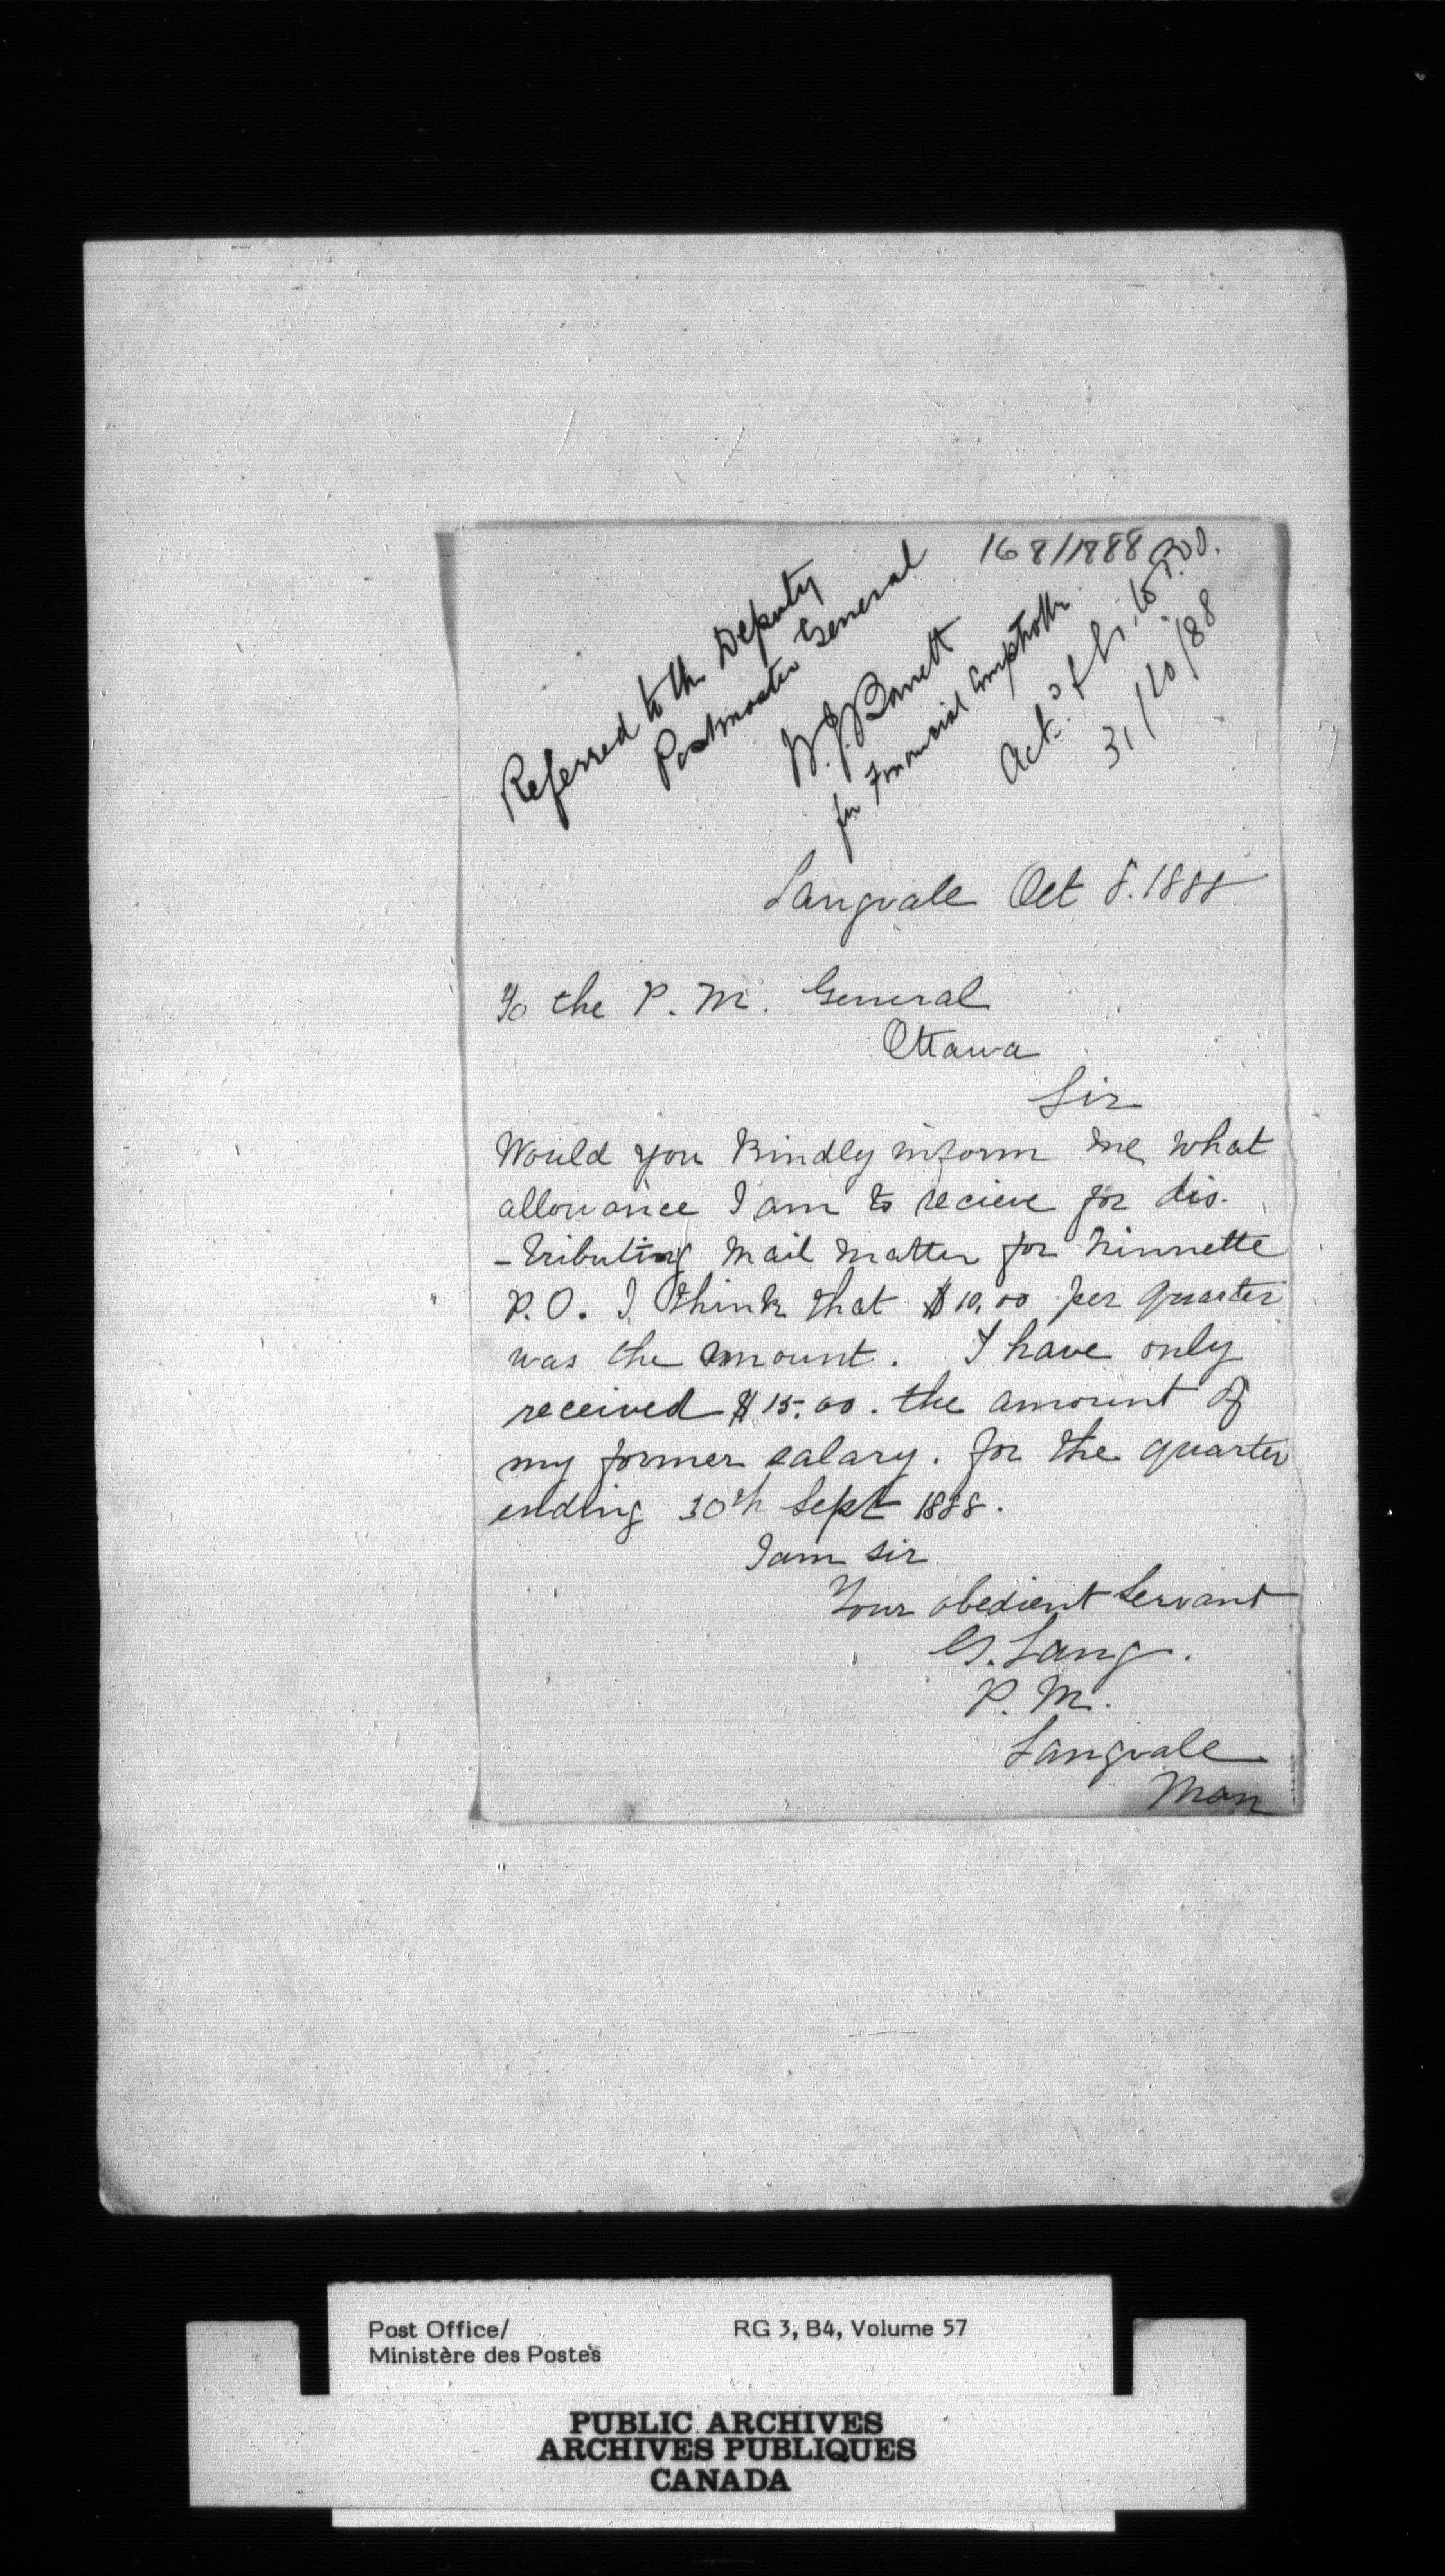 168/1888
Referred to the Deputy
Postmaster General
W.J. Barrett
for Financial Comptroller
31/10/88
Langvale Oct 8. 1888
To the P. M. General
Ottawa
Sir
Would you kindly inform me what
allowance I am to recieve for dis-
-tributing mail matter for Ninnette
P.O. I think that $10.00 per quarter
was the amount. I have only
received $15.00. the amount of
my former salary. for the quarter
ending 30th Sept 1888.
I am sir
Your obedient Servant
G. Lang.
P. M.
Langvale
Man
Post Office/ RG 3, B4, Volume 57
Ministère des Postes
PUBLIC ARCHIVES
ARCHIVES PUBLIQUES
CANADA